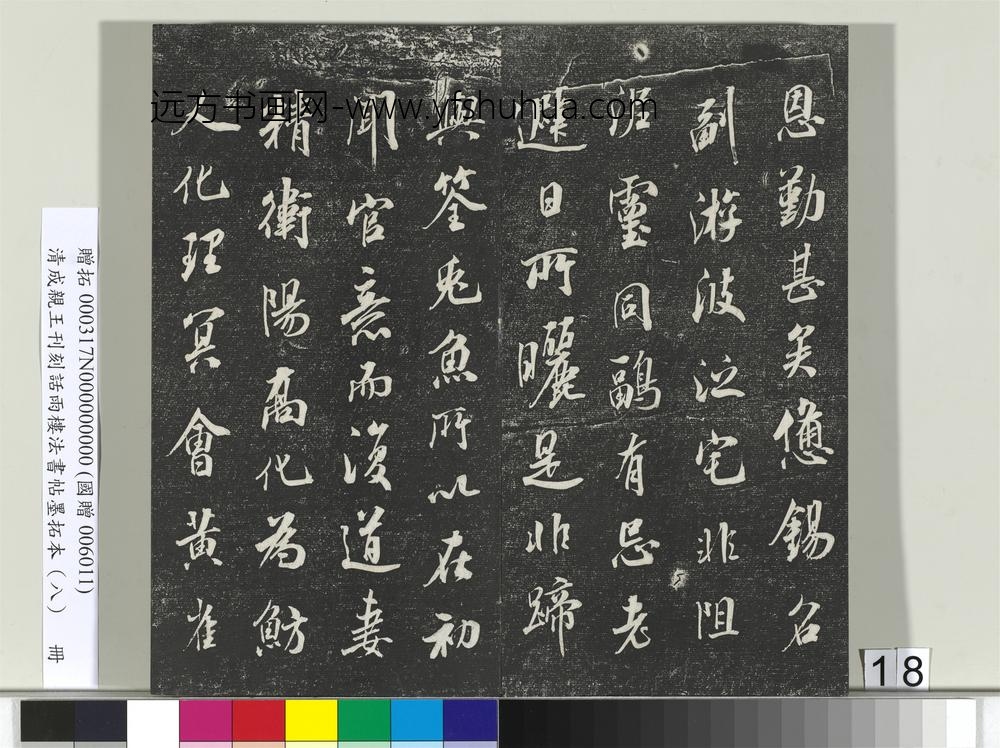 远方书画网-www.yfshuhua.com
恩勤甚矣憊錫名
副游波泛宅非阻
同鷗有忌老
日所曬是非蹄
與筌兔魚所以在初
聞官意而復道妻
衛陽高化為魴
化理冥會黃雀
贈拓 000317N000000000 (國贈 006011)
清成親王刊刻話雨樓法書帖墨拓本（八） 冊
18